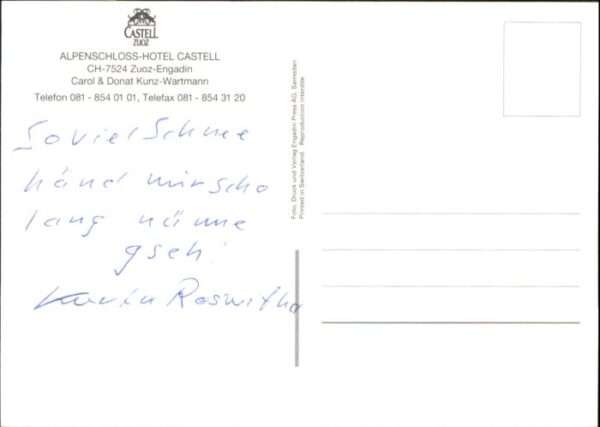 CASTELL
ZUOZ
ALPENSCHLOSS-HOTEL CASTELL
CH-7524 Zuoz-Engadin
Carol & Donat Kunz-Wartmann
Telefon 081 - 854 01 01, Telefax 081 - 854 31 20
Soviel Schnee
händ mir scho
lang nümme
gseh!
Roswitha
Foto, Druck und Verlag Engadin Press AG, Samedan
Printed in Switzerland Reproduktion interdite